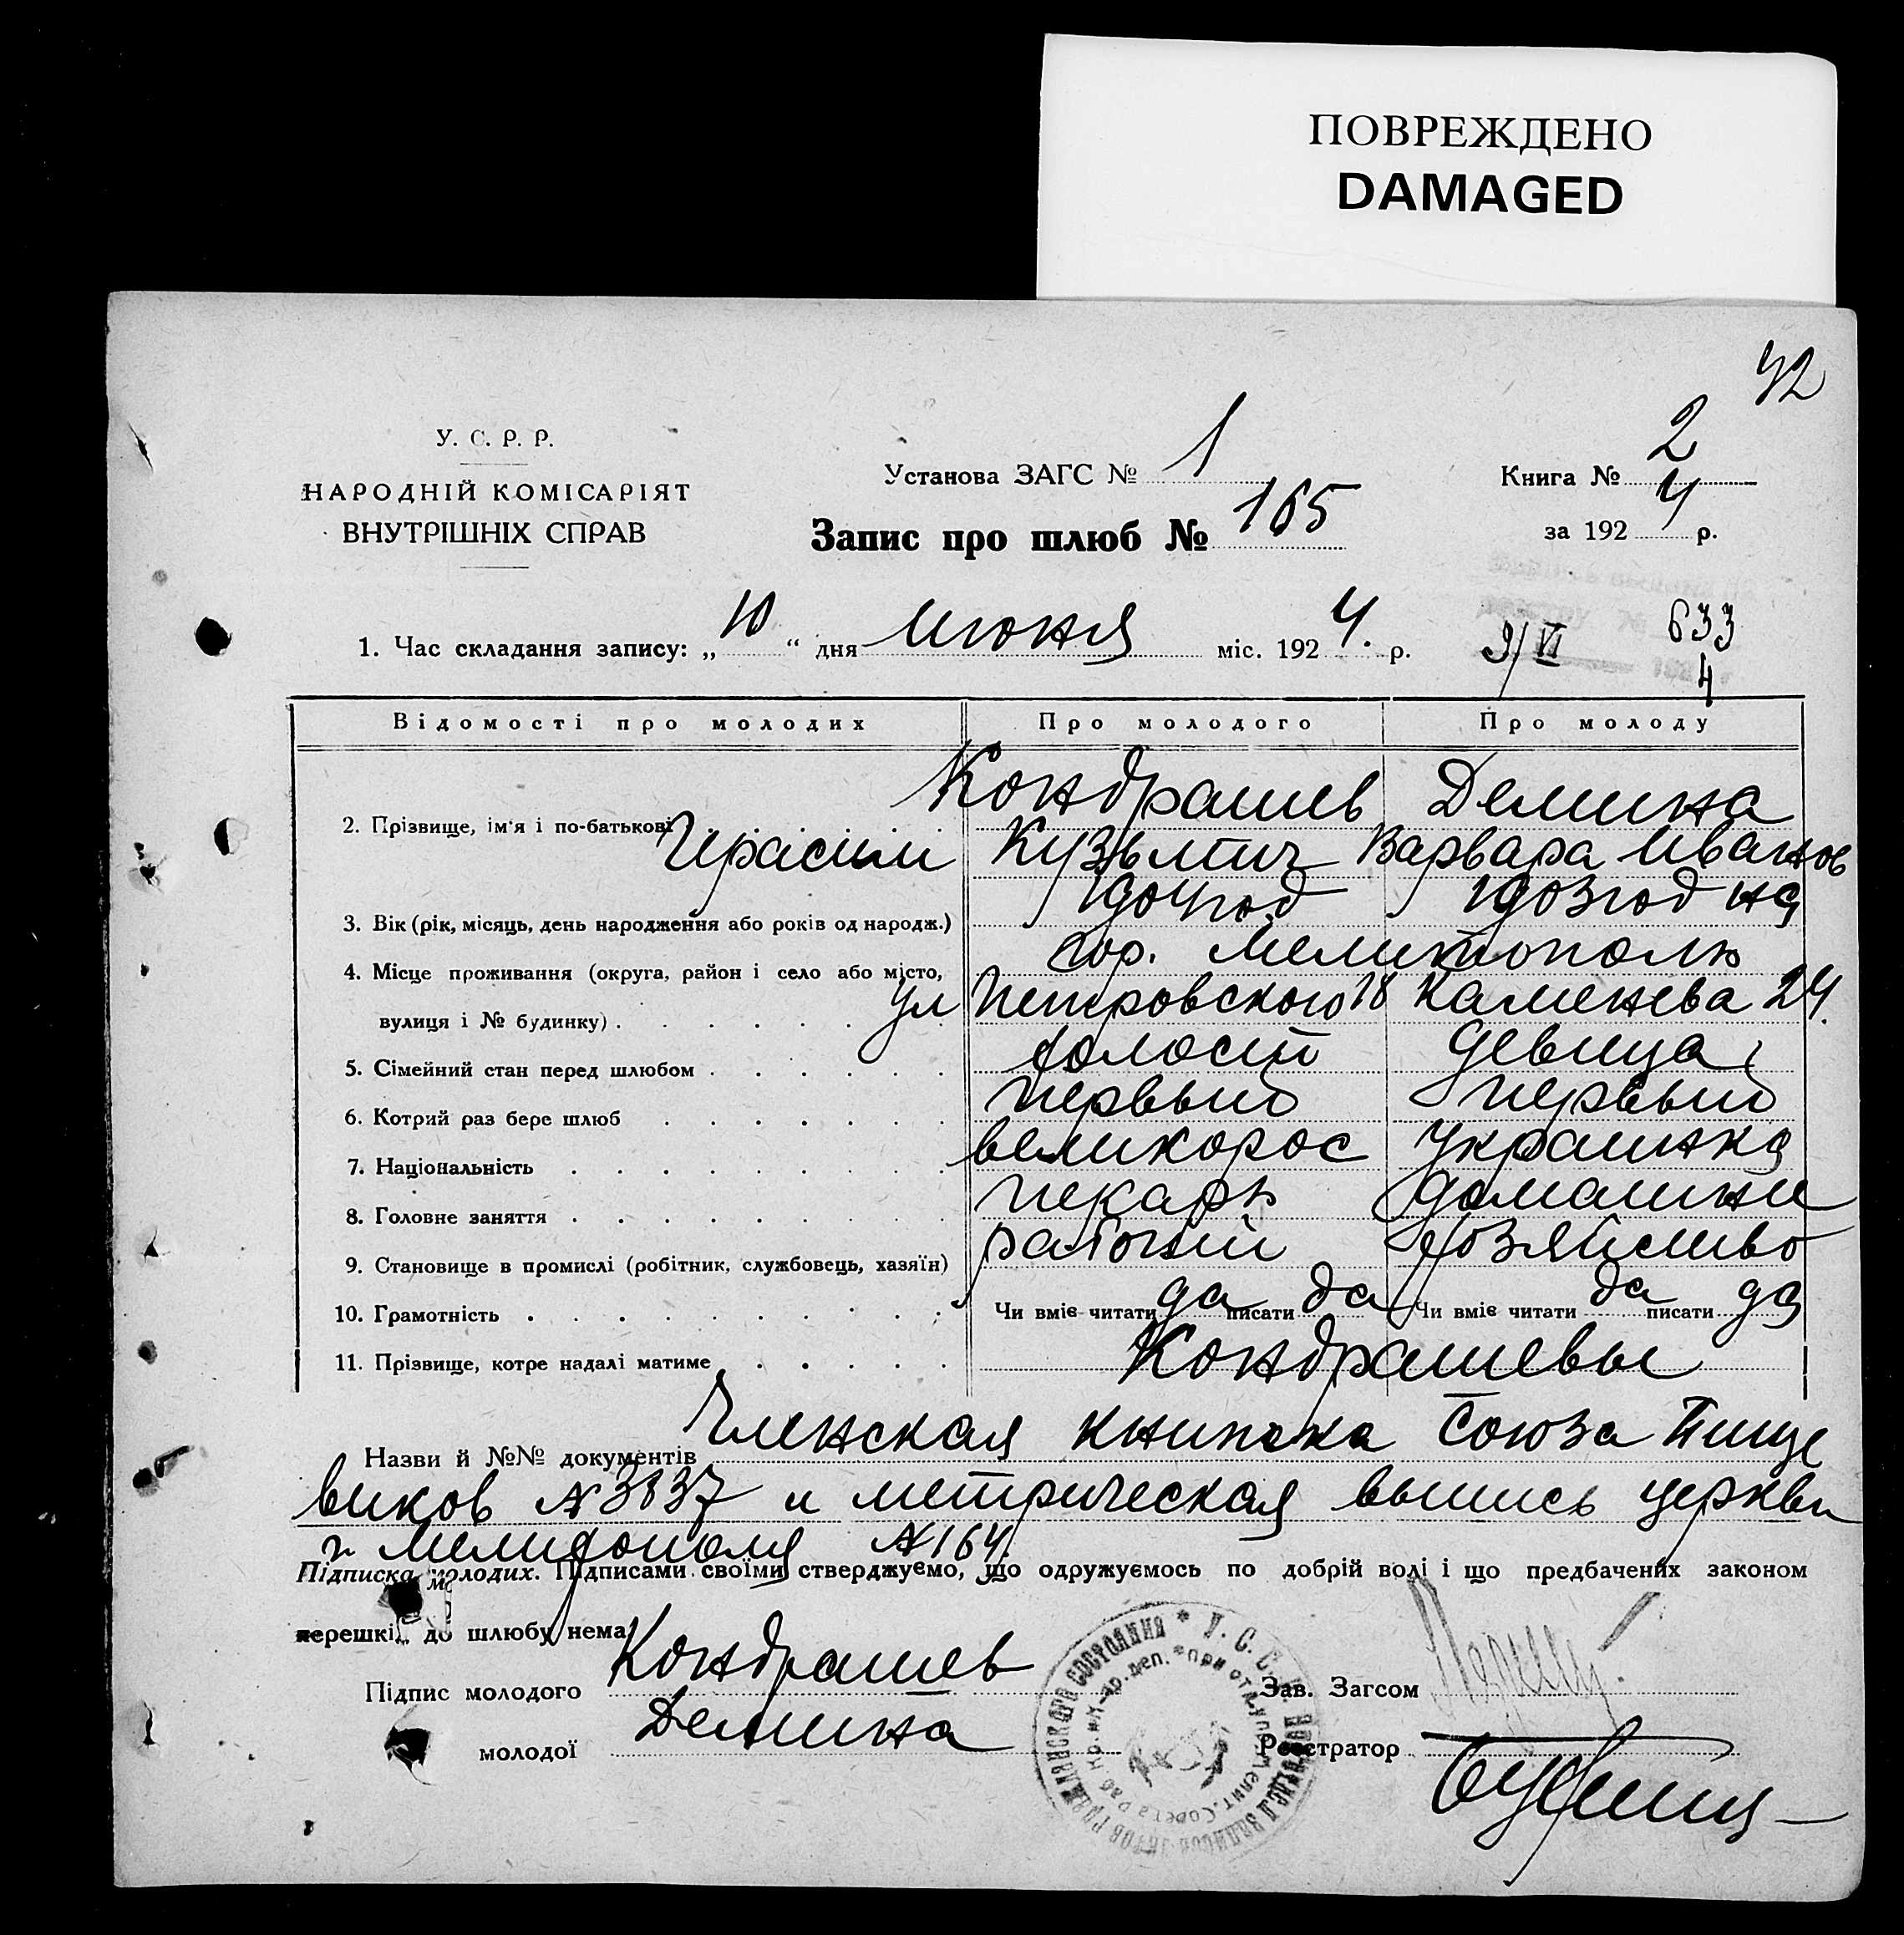 ПОВРЕЖДЕНО
DAMAGED
42
У. С. Р. Р.
НАРОДНІЙ КОМІСАРІЯТ
ВНУТРІШНІХ СПРАВ
Установа ЗАГС № 1
Книга № 2
Запис про шлюб № 165
за 192 4 р.
1. Час складання запису: „ 10 “ дня июня міс. 192 4. р.
9/VI 633
4
Відомості про молодих Про молодого Про молоду
Кондрашев Демина
2. Прізвище, ім'я і по-батькові Гирасим Кузьмич Варвара Иванов
на
3. Вік (рік, місяць, день народження або років од народж.) 1904 год 1903 год
4. Місце проживання (округа, район і село або місто, гор. Мелитополь
вулиця і № будинку) ул Петровского 18 Каменева 24.
5. Сімейний стан перед шлюбом холост девица
6. Котрий раз бере шлюб первый первый
7. Національність великорос украинка
8. Головне заняття пекарь домашне
9. Становище в промислі (робітник, службовець, хазяїн) рабочий хозяйство
10. Грамотність Чи вміє читати да писати да Чи вміє читати да писати да
11. Прізвище, котре надалі матиме Кондрашевы
Назви й №№ документів Членская книжка Союза Пище
виков № 3837 и метрическая выпись церкви
г. Мелитополя № 164
Підписка молодих. Підписами своїми стверджуємо, що одружуємось по добрій волі і що предбачених законом
перешкід до шлюбу нема
Підпис молодого Кондрашев
Зав. Загсом
молодої Демина
Реєстратор